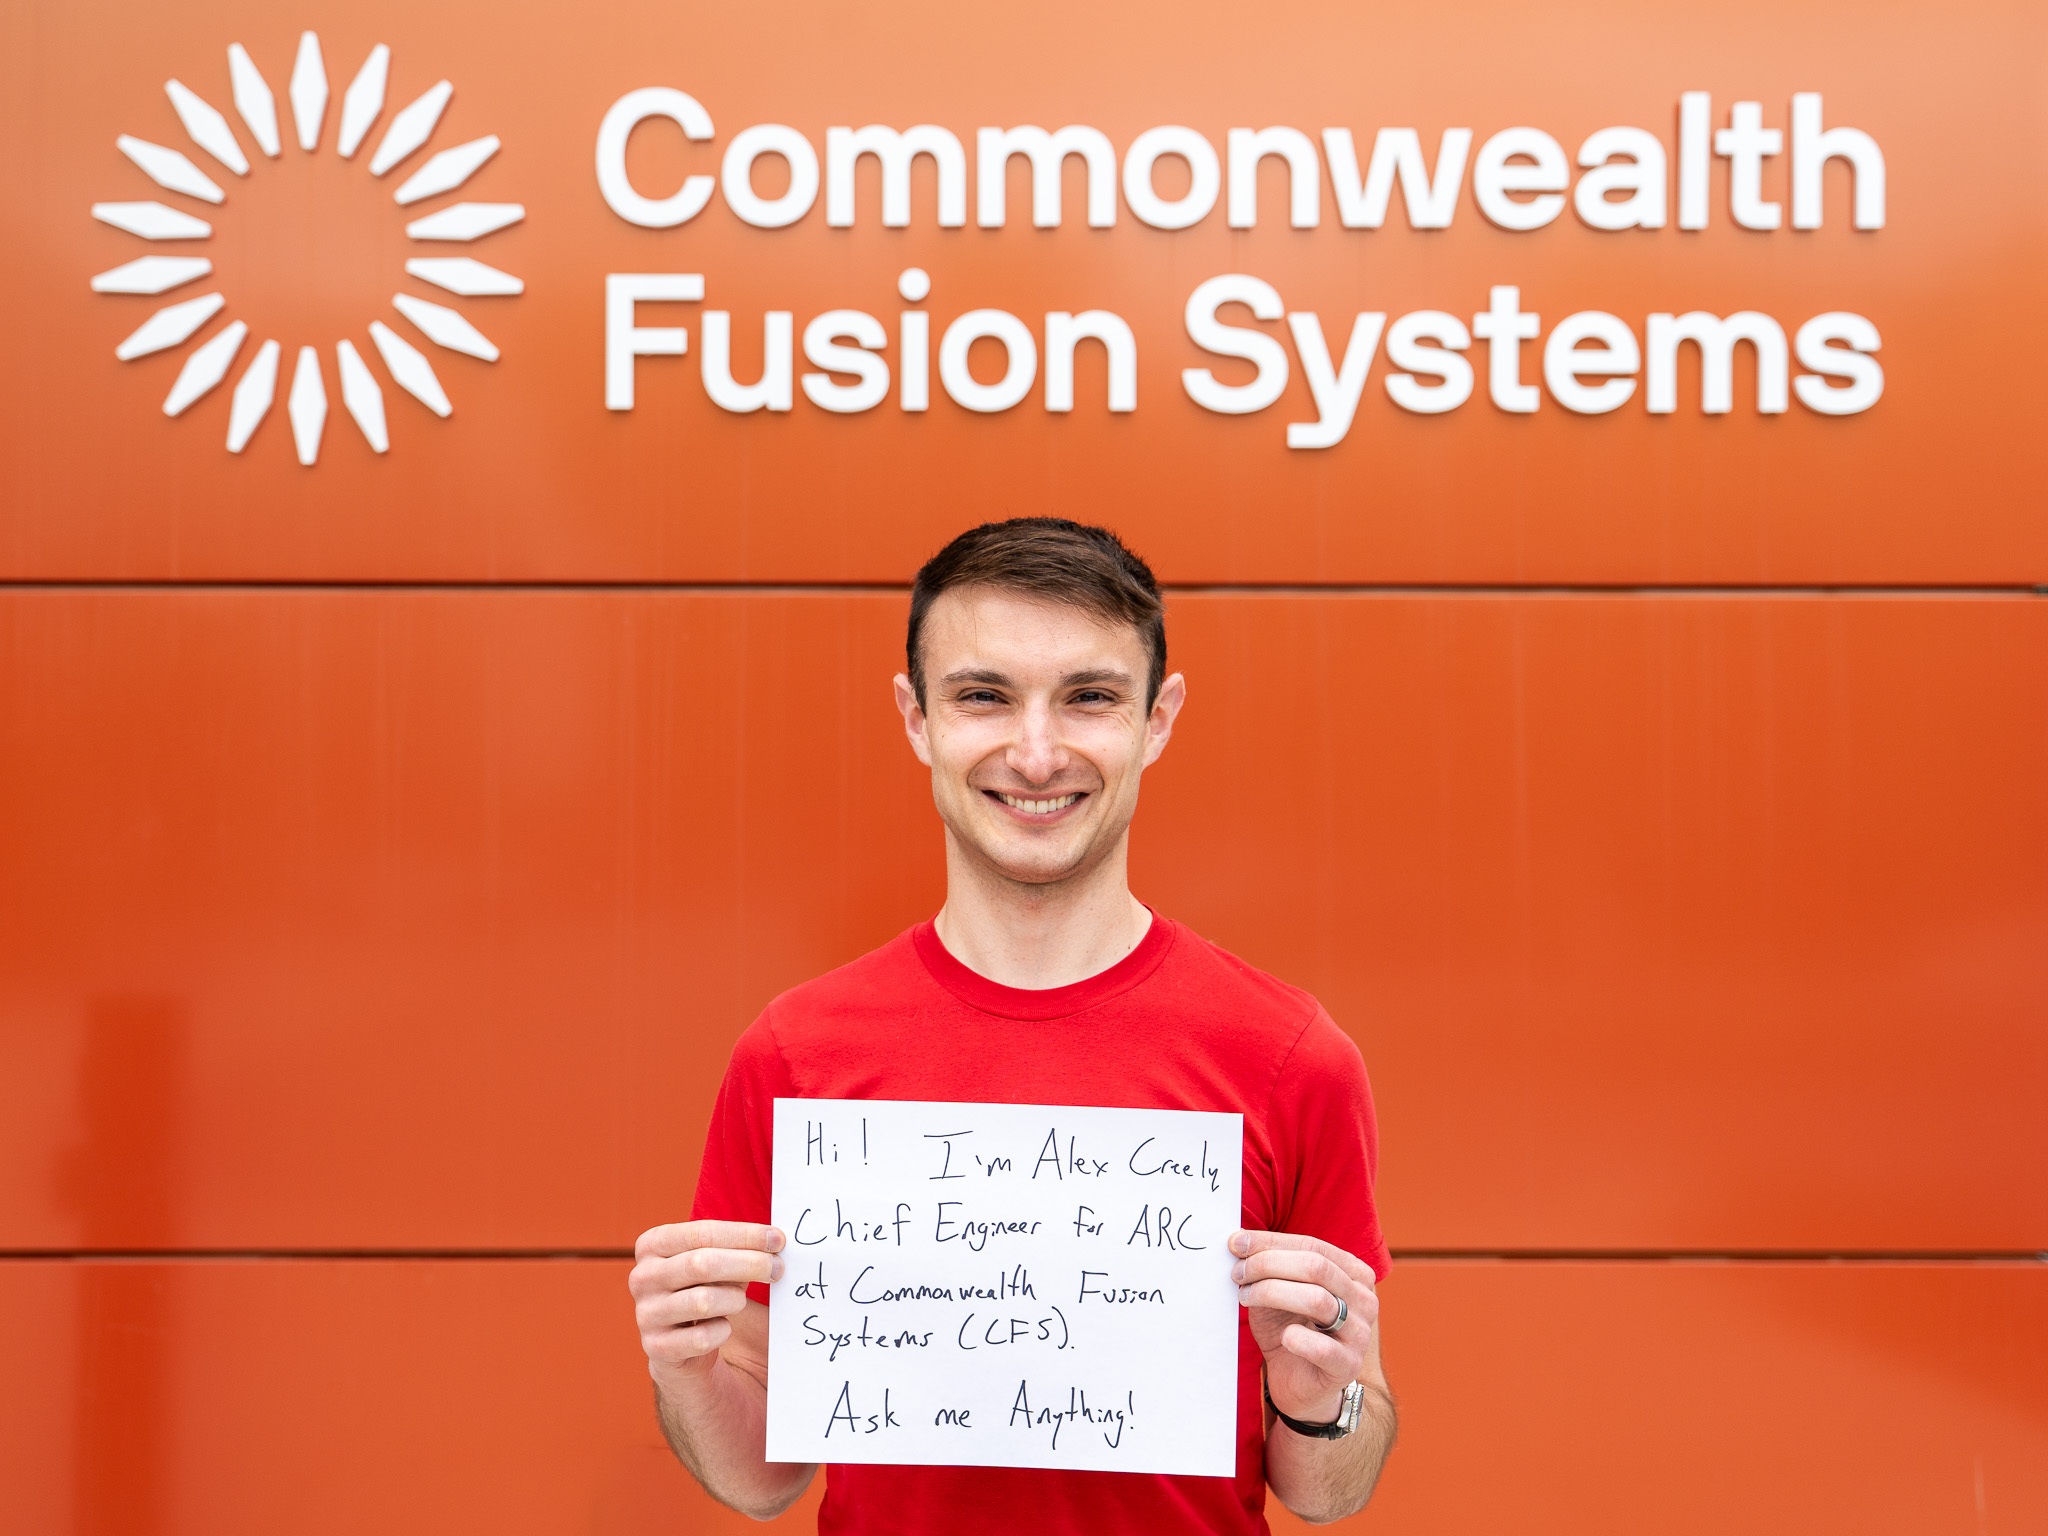 Commonwealth
Fusion Systems
Hi! I'm Alex Creely
Chief Engineer for ARC
at Commonwealth Fusion
Systems (CFS).
Ask me Anything!